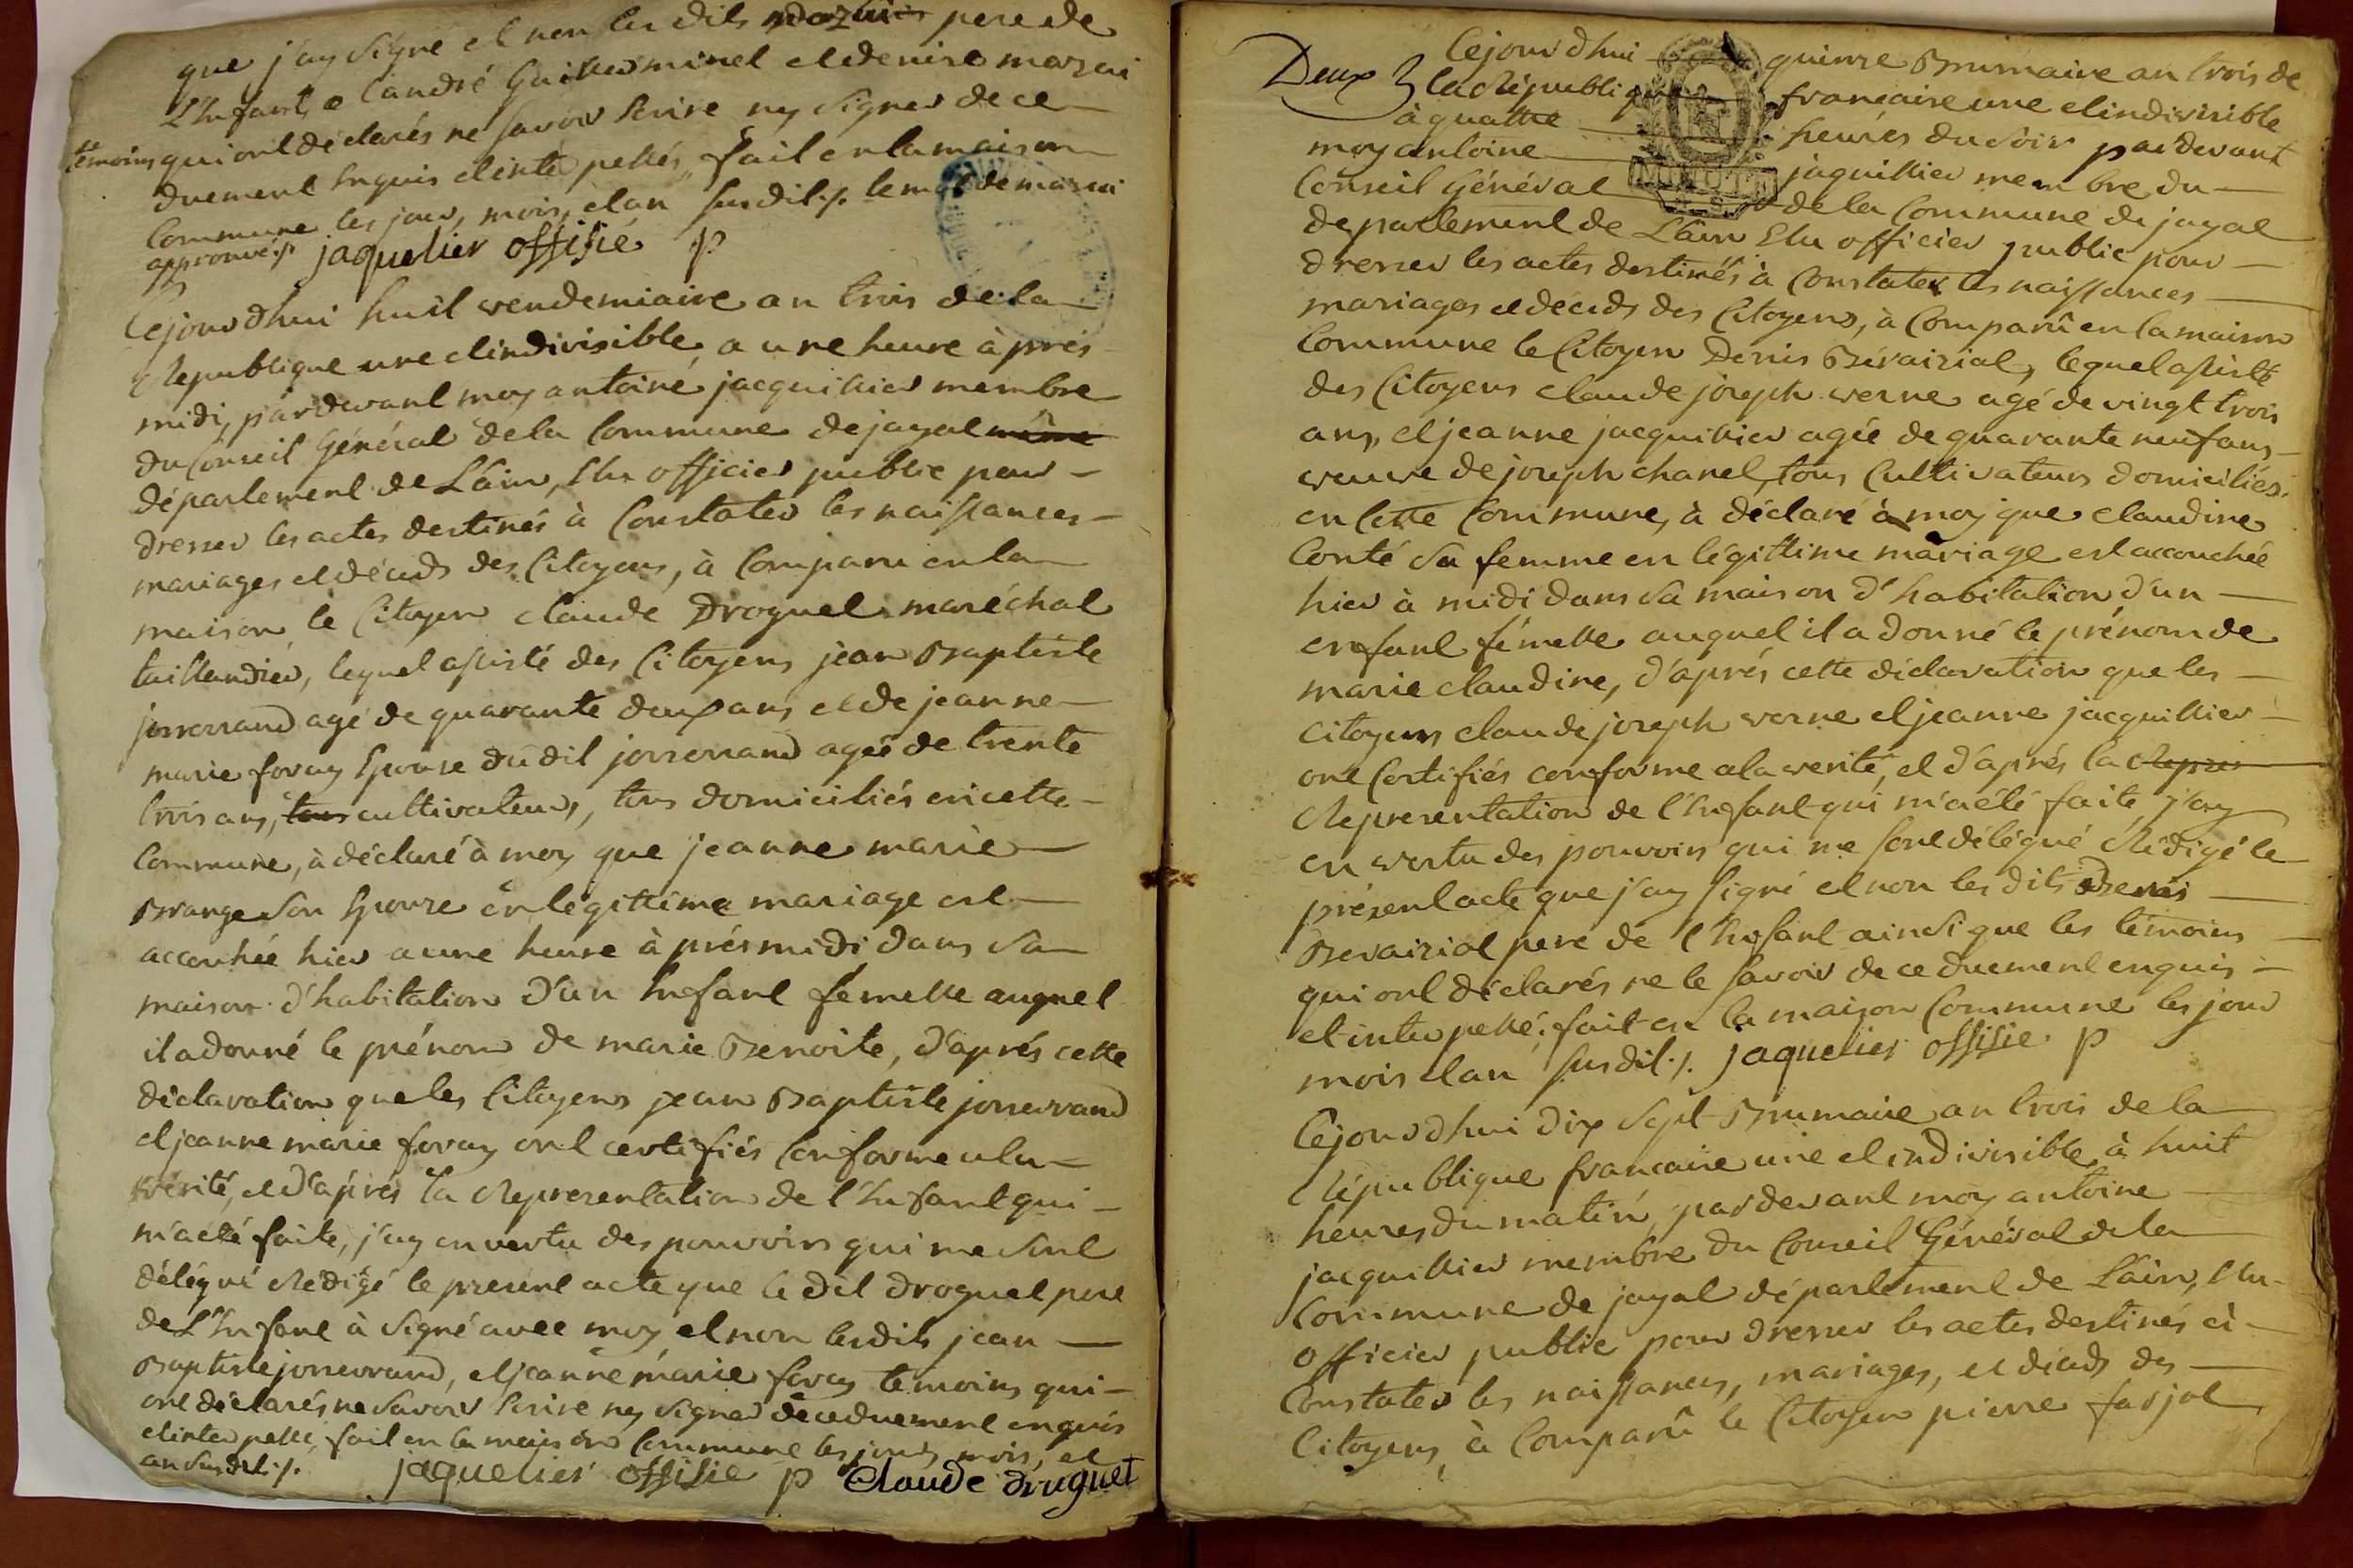 que j'ay signé et non les dits mazuis pere de
L'Enfant, e landré Guillerminet et denise mazui
témoins qui ont déclarés ne savoir Ecrire ny signer de ce
duement Enquis et inter pellés, fait en la maison
Commune les jour, mois, et an susdit ./. le mot de mazui
approuvé ./. jaquelier offisié p
Cejourdhui huit vendemiaire an trois de la
Republique une et indivisible, a une heure à prés
midi, pardevant moy antoine jacquillier membre
du Conseil Général de la Commune de jayal même
département de L'ain, Elu officier public pour
dresser les actes destinés à Constater les naissances
mariages et décéds des Citoyens, à Comparu en la
maison le Citoyen claude Droguet maréchal
taillandier, lequel assisté des Citoyens jean Baptiste
josserrand agé de quarante deux ans et de jeanne
marie foray Epouse du dit josserrand agée de trente
trois ans, tous cultivateurs, tous domiciliés en cette
Commune, à déclaré à moy que jeanne marie
Brange son Epouse en légittime mariage est
accouchée hier a une heure à prés midi dans sa
maison d'habitation d'un Enfant femelle auquel
il a donné le prénom de marie Benoite, d'aprés cette
déclaration que les Citoyens jean Baptiste josserrand
et jeanne marie foray ont certifiés Conforme a la
vérité, et d'aprés la Representation de l'Enfant qui
m'a été faite, j'ay en vertu des pouvoirs qui me sont
délégué Rédigé le present acte que le dit droguet pere
de L'Enfant à signé avec moy et non les dits jean
Baptiste josserrand, et jeanne marie foray temoins qui
ont déclarés ne savoir Ecrire ny signer de ce duement enquis
et inter pellé, fait en la maison Commune les jour, mois, et
an susdit ./. jaquelier offisie p Claude druguet
Deux
Cejourdhui quinze Brumaire an trois de
la République francaise une et indivisible
à quattre heures du soir pardevant
moy antoine jaquillier membre du
Conseil Général de la Commune de jayal
MINUTE
departement de L'ain Elu officier public pour
dresser les actes destinés à Constater les naissances
mariages et décéds des Citoyens, à Comparû en la maison
Commune le Citoyen Denis Bévairiat, lequel assisté
des Citoyens claude joseph verne agé de vingt trois
ans, et jeanne jacquillier agée de quarante neuf ans
veuve de joseph chanel, tous Cultivateurs domiciliés
en Cette Commune, à déclaré à moy que claudine
Conté sa femme en légittime mariage est accouchée
hier à midi dans sa maison d'habitation d'un
enfant fémelle auquel il a donné le prénom de
marie claudine, d'aprés cette déclaration que les
citoyens claude joseph verne et jeanne jacquillier
ont Certifiés conforme a la verité, et d'aprés la Repres
Representation de l'Enfant qui m'a été faite, j'ay
en vertu des pouvoirs qui me sont délégué Rédigé le
présent acte que j'ay signé et non les dits Denis
Bevairiat pere de l'Enfant ainsi que les témoins
qui ont déclarés ne le savoir de ce duement enquis
et inter pellé; fait en la maison Commune les jour
mois et an susdit ./. jaquelier offisie p
Cejourdhui dix sept Brumaire an trois de la
République francaise une et indivisible, à huit
heures du matin, pardevant moy antoine
jacquillier membre du Conseil Général de la
Commune de jayal département de L'ain, Elu
officier public pour dresser les actes destinés à
Constater les naissances, mariages, et décéds des
Citoyens, à Comparû le Citoyen pierre farjot